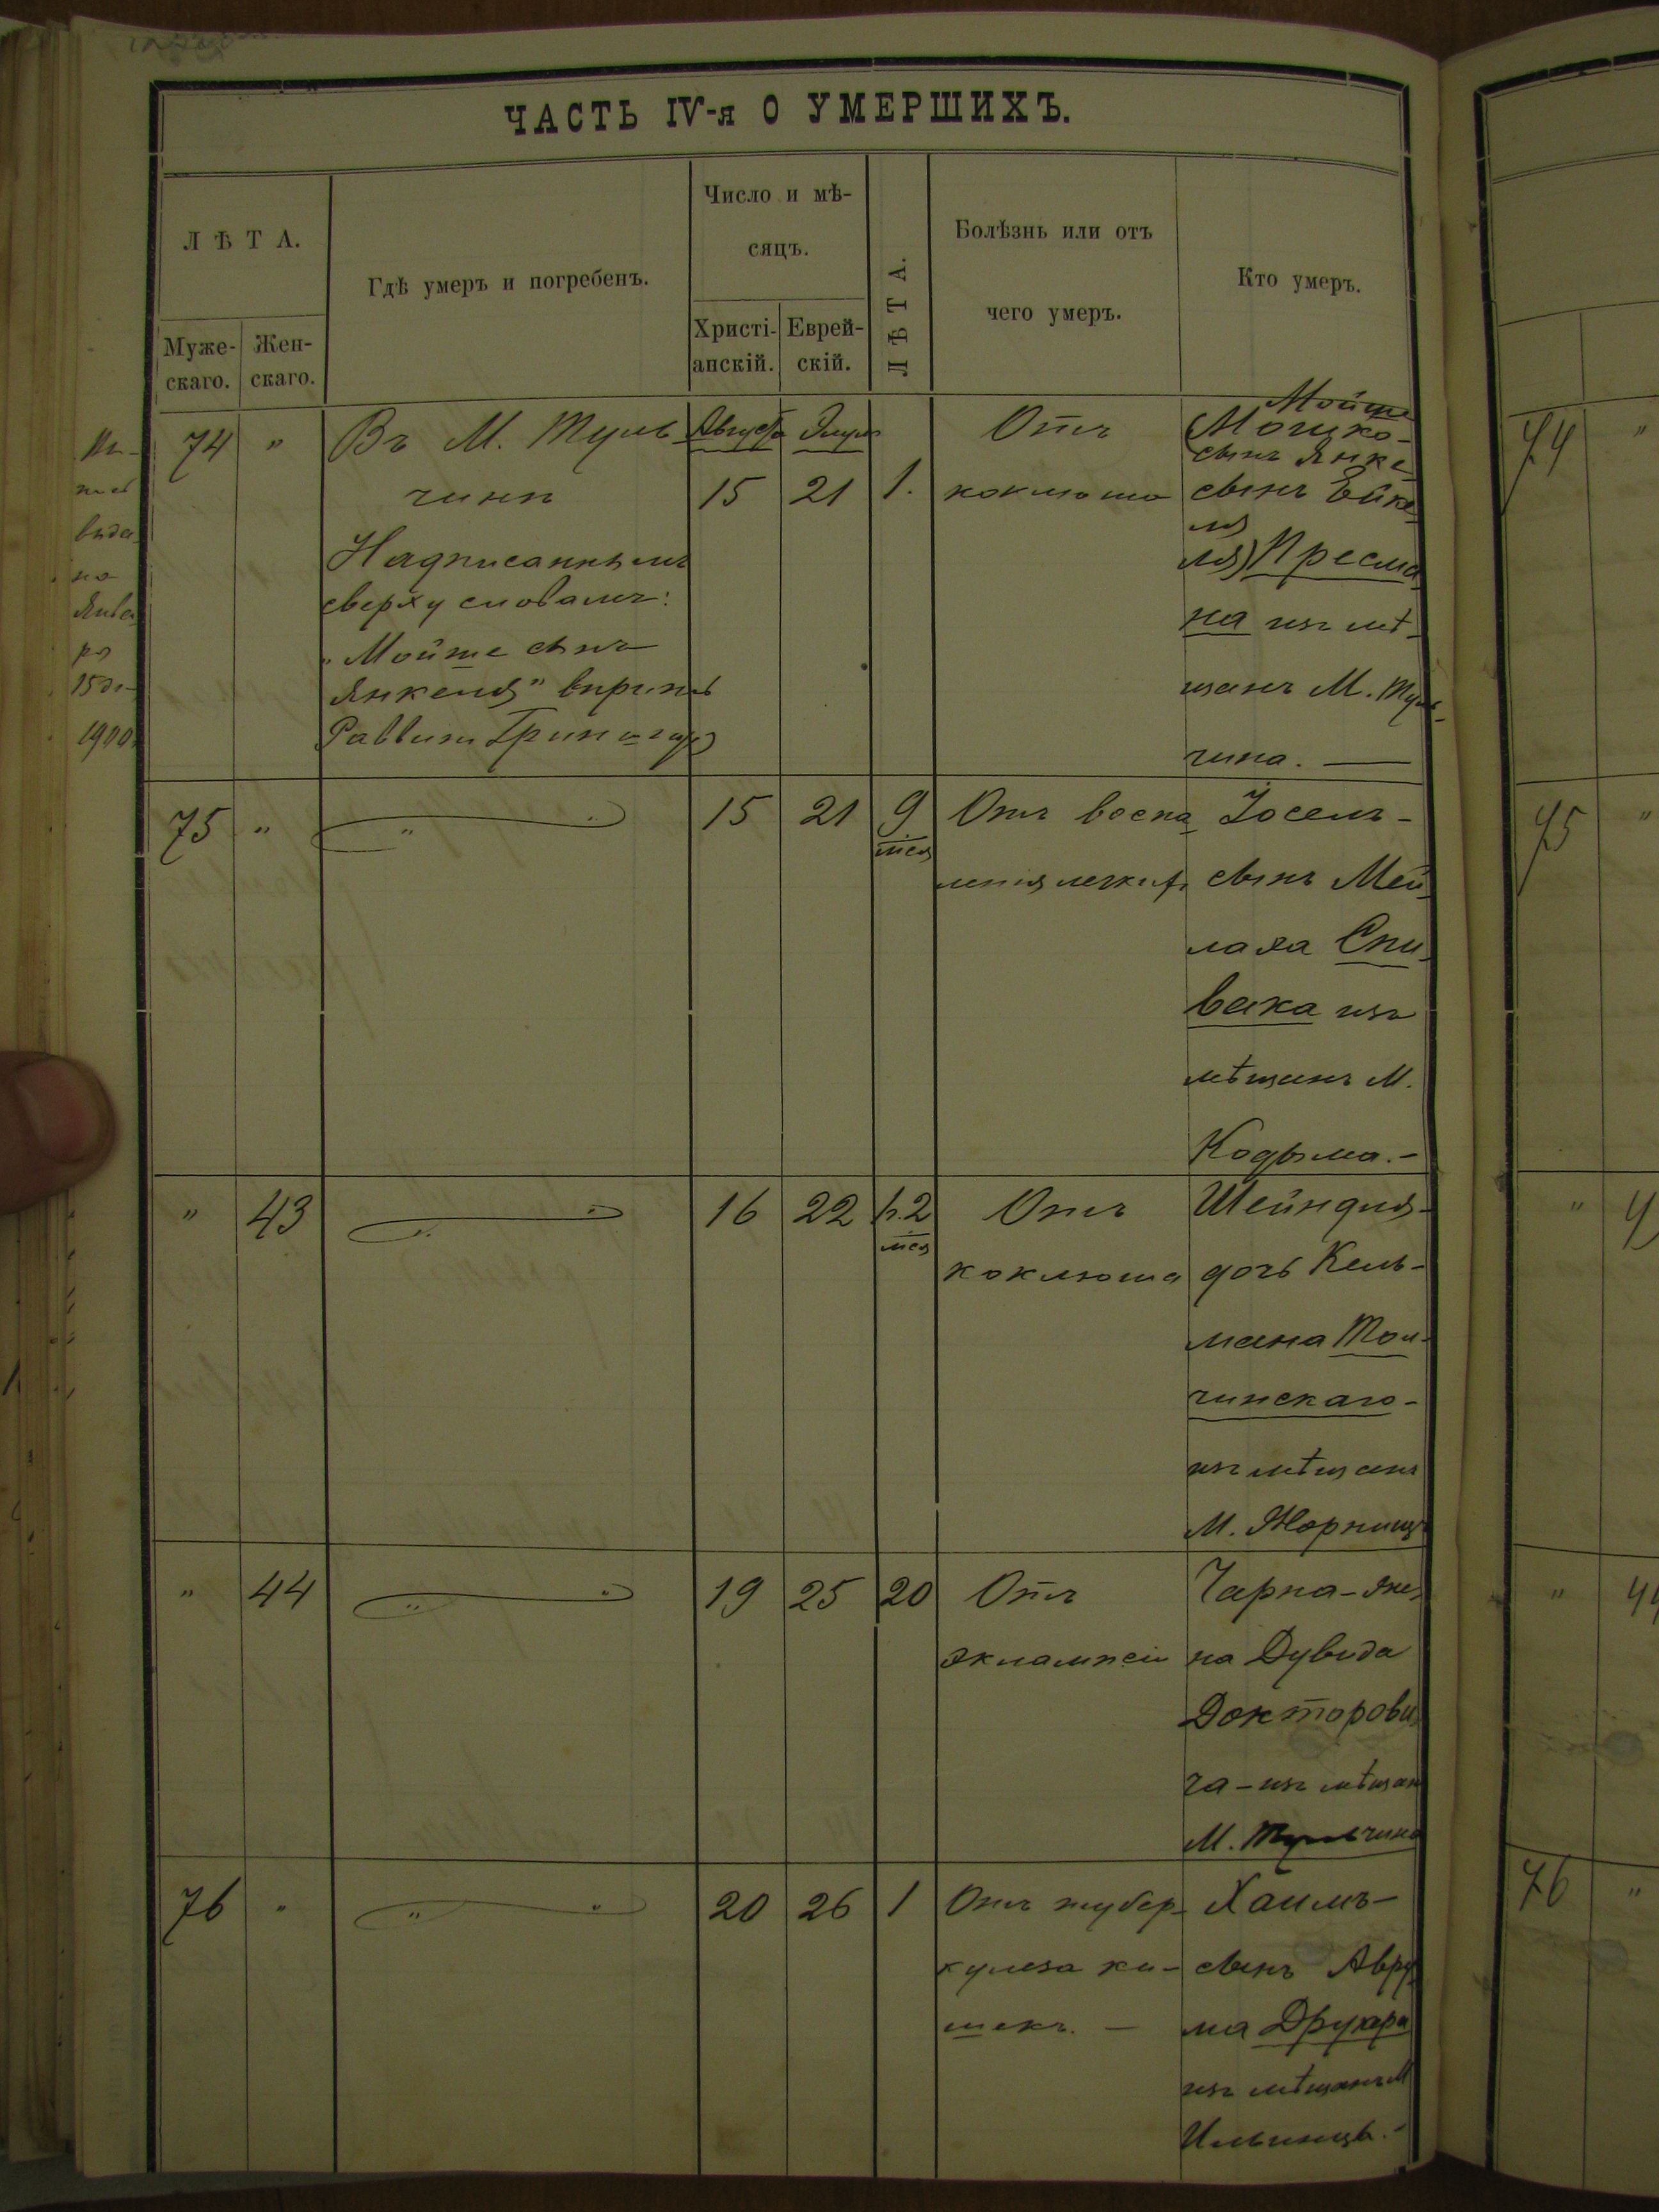 ЧАСТЬ IV-я О УМЕРШИХЪ.
ЛѢТА.
Муже-
скаго.
Жен-
скаго.
Гдѣ умеръ и погребенъ.
Число и мѣ-
сяцъ.
Христі-
анскій.
Еврей-
скій.
ЛѢТА.
Болѣзнь или отъ
чего умеръ.
Кто умеръ.
74
"
Въ М. Туль
чинѣ
Надписаннымъ
сверху словамъ:
"Мойше сынъ
Янкеля" вѣрить
Раввинъ
Августа
15
Элулъ
21
1.
Отъ
коклюша
Мойше
(Мошко-
сынъ Янке
сынъ Ейке
ля
ля) Пресма
на изъ мѣ-
щанъ М. Туль-
чина. —
выда
но
Янва
ря
15 дн
1900
75
"
" "
15
21
9
мѣся
Отъ воспа
ленія легкихъ
Іосель-
сынъ Мей
лаха Спи
вака изъ
мѣщанъ М.
Кодыма.-
"
43
" "
16
22
1.2
мѣся
Отъ
коклюша
Шейндля-
дочь Кель-
мана Тол-
чинскаго-
изъ мѣщанъ
М. Жорнищъ
"
44
" "
19
25
20
Отъ
эклампсіи
Чарна-же
на Дувида
Докторови
ча-изъ мѣщан
М. Тульчина
76
"
" "
20
26
1
Отъ тубер-
кулеза ки-
шекъ. —
Хаимъ-
сынъ Авру
ма Друкаря
изъ мѣщанъ М
Ильинецъ.-
74
"
75
"
"
4
"
44
76
"